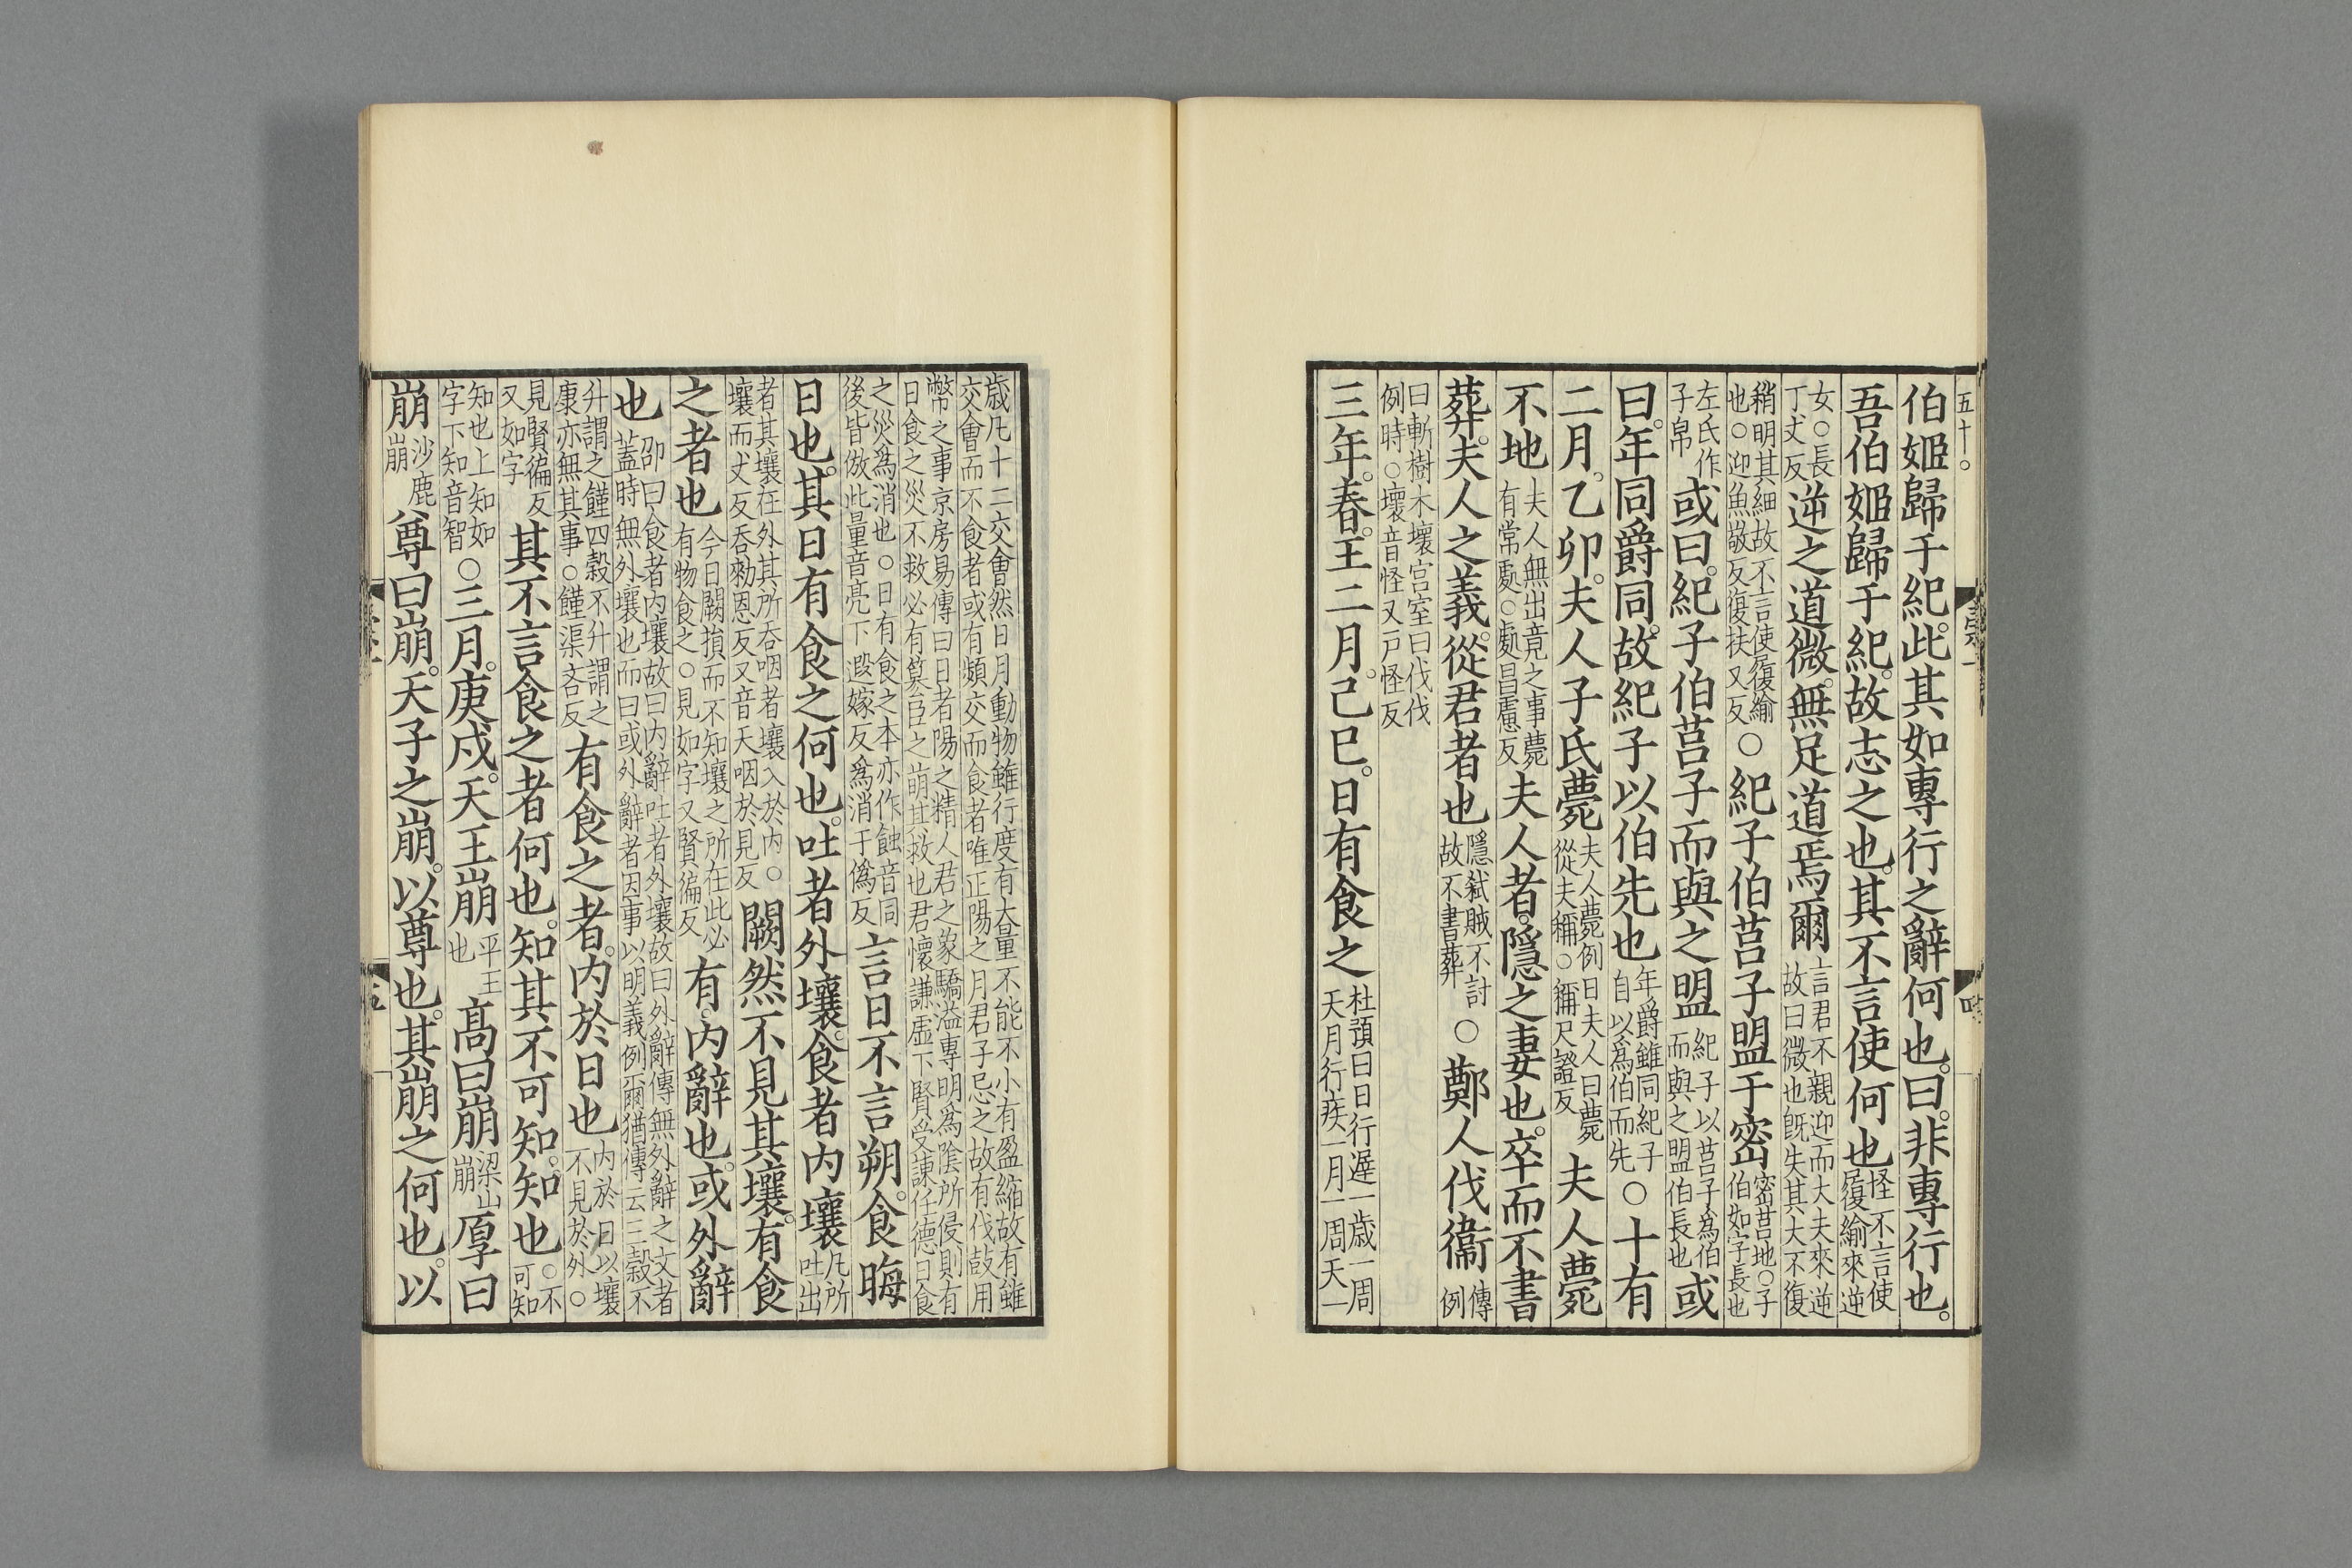 五十。
伯姬歸于紀。此其如專行之辭何也。曰。非專行也。
吾伯姬歸于紀。故志之也。其不言使何也怪不言使履緰來逆
女○長丁丈反逆之道微。無足道焉爾言君不親迎而大夫來逆故曰微也旣失其大不復
稍明其細故不言使履緰也○迎魚敬反復扶又反○紀子伯莒子盟于密密莒地○子伯如字長也
左氏作子帛或曰。紀子伯莒子而與之盟紀子以莒子爲伯而與之盟伯長也或
曰。年同爵同。故紀子以伯先也年爵雖同紀子自以爲伯而先○十有
二月。乙卯。夫人子氏薨夫人薨例日夫人曰薨從夫稱○稱尺證反夫人薨
不地夫人無出竟之事薨有常處○處昌慮反夫人者。隱之妻也。卒而不書
葬。夫人之義。從君者也隱弑賊不討故不書葬○鄭人伐衞傳例
曰斬樹木壞宮室曰伐伐例時○壞音怪又戸怪反
三年。春。王二月。己巳。日有食之杜預曰日行遲一歲一周天月行疾一月一周天一
歲凡十二交會然日月動物雖行度有大量不能不小有盈縮故有雖交會而不食者或有頻交而食者唯正陽之月君子忌之故有伐鼓用
幣之事京房易傳曰日者陽之精人君之象驕溢專明爲陰所侵則有日食之災不救必有簒臣之萌其救也君懷謙虛下賢受諫任德日食
之災爲消也○日有食之本亦作蝕音同後皆倣此量音亮下遐嫁反爲消于僞反言日不言朔。食晦
日也。其日有食之何也。吐者外壤。食者內壤凡所吐出
者其壤在外其所吞咽者壤入於內○壤而丈反吞勑恩反又音天咽於見反闕然不見其壤。有食
之者也今日闕損而不知壤之所在此必有物食之○見如字又賢徧反有。內辭也。或外辭
也邵曰食者內壤故曰內辭吐者外壤故曰外辭傳無外辭之文者蓋時無外壤也而曰或外辭者因事以明義例爾猶傳云三穀不
升謂之饉四穀不升謂之康亦無其事○饉渠吝反有食之者。內於日也內於日以壤不見於外○
見賢徧反又如字其不言食之者何也。知其不可知。知也○不可知
知也上知如字下知音智○三月。庚戌。天王崩平王也高曰崩梁山崩厚曰
崩沙鹿崩尊曰崩。天子之崩。以尊也。其崩之何也。以